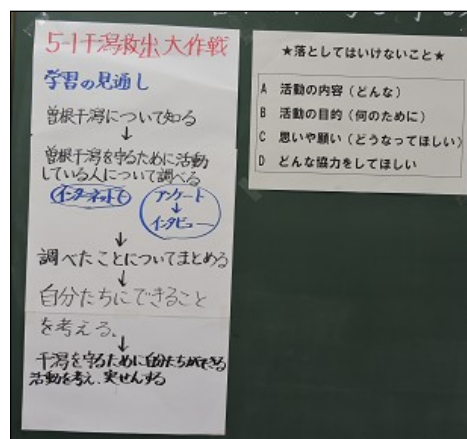 5-1干潟救出大作戦
学習の見通し
曽根干潟について知る
↓
曽根干潟を守るために活動
している人について調べる
インターネットで
アンケート
↓
インタビュー
↓
調べたことについてまとめる
↓
自分たちにできること
を考える。
↓
干潟を守るために自分たちができる
活動を考え、実せんする
★落としてはいけないこと★
A 活動の内容（どんな）
B 活動の目的（何のために）
C 思いや願い（どうなってほしい）
D どんな協力をしてほしい